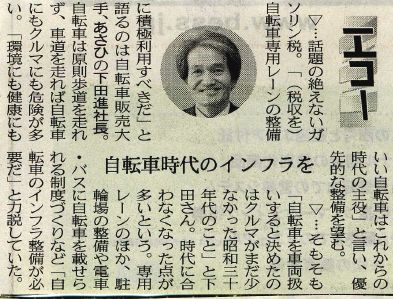 エコー
▽…話題の絶えないガ
ソリン税。「（税収を）
自転車専用レーンの整備
に積極利用すべきだ」と
語るのは自転車販売大
手、あさひの下田進社長。
自転車は原則歩道を走れ
ず、車道を走れば自転車
にもクルマにも危険が多
い。「環境にも健康にも
自転車時代のインフラを
いい自転車はこれからの
時代の主役」と言い、優
先的な整備を望む。
▽…そもそも
「自転車を車両扱
いすると決めたの
はクルマがまだ少
なかった昭和三十
年代のこと」と下
田さん。時代に合
わなくなった点が
多いという。専用
レーンのほか、駐
輪場の整備や電車
・バスに自転車を載せら
れる制度づくりなど「自
転車のインフラ整備が必
要だ」と力説していた。